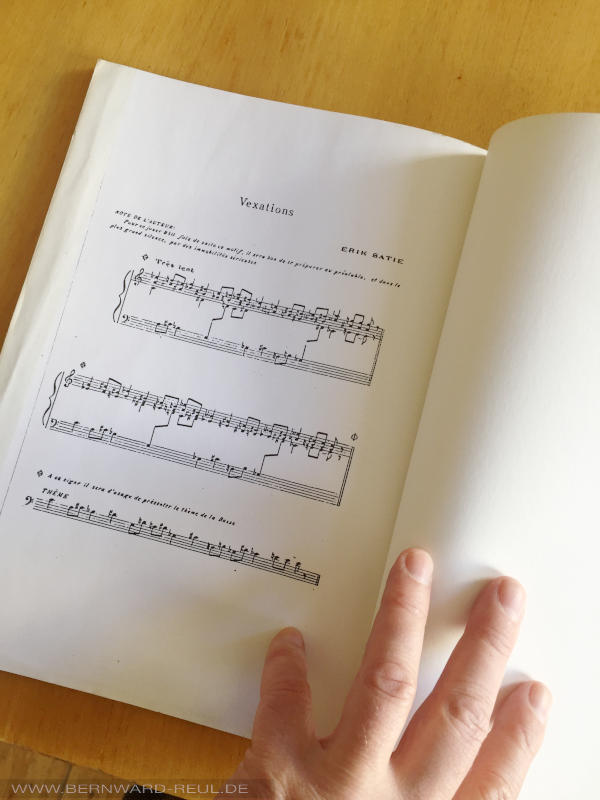 Vexations
ERIK SATIE
NOTE DE L'AUTEUR:
Pour se jouer 840 fois de suite ce motif, il sera bon de se préparer au préalable, et dans le
plus grand silence, par des immobilités sérieuses
Très lent
A ce signe il sera d'usage de présenter le thème de la Basse
THÈME
WWW.BERNWARD-REUL.DE